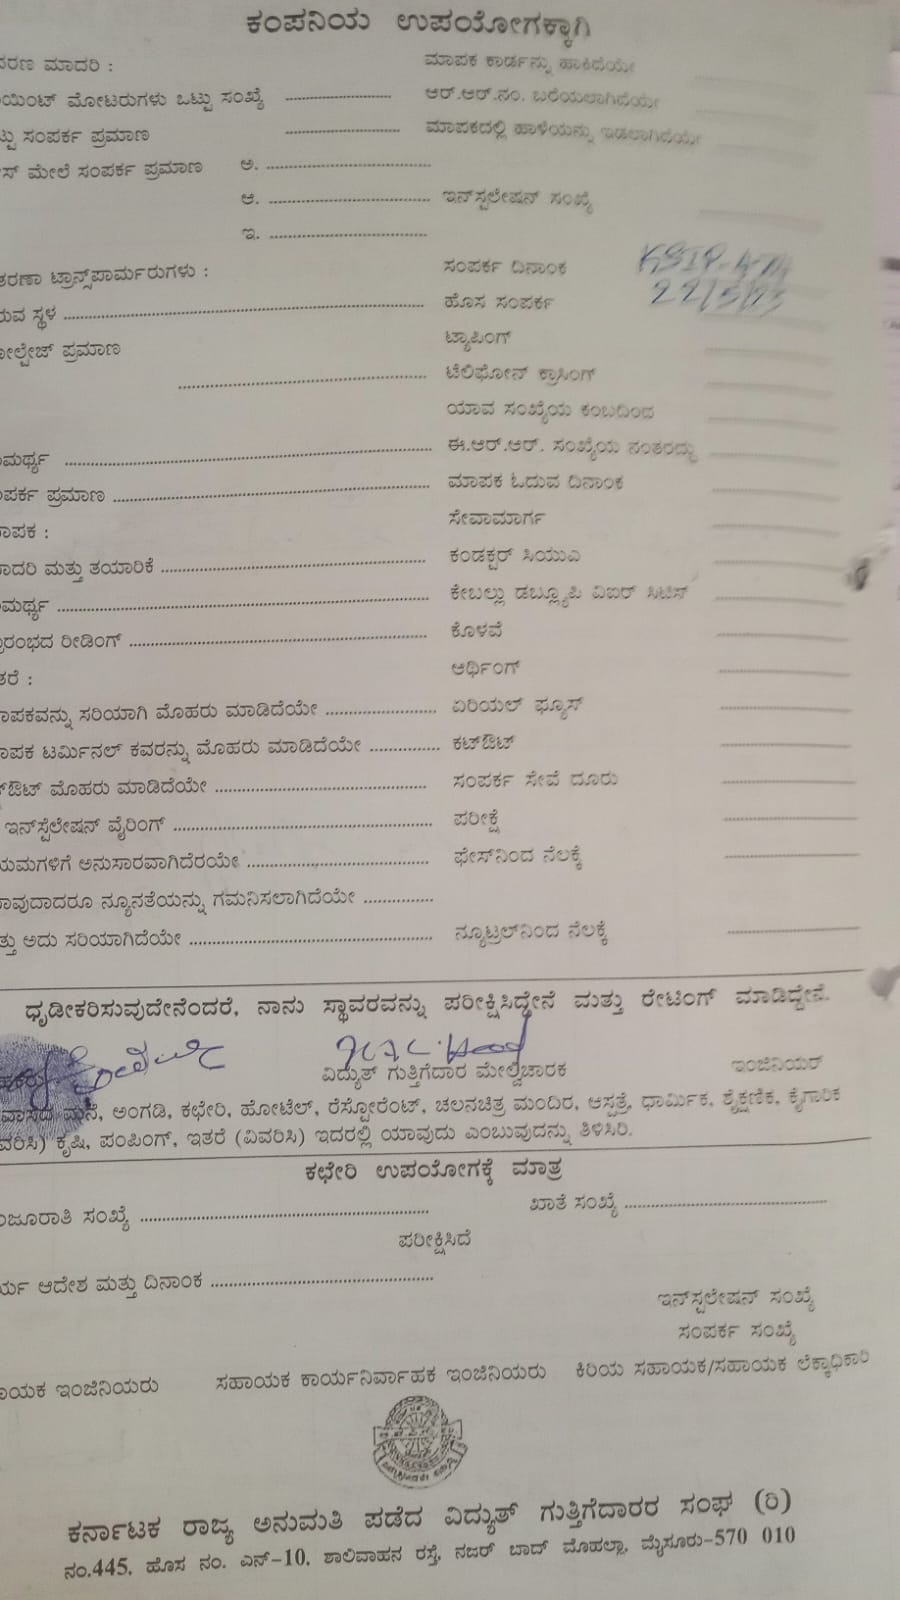 ಕಂಪನಿಯ ಉಪಯೋಗಕ್ಕಾಗಿ
ಮಾದರಿ :
ಮಾಪಕ ಕಾರ್ಡನ್ನು ಹಾಕಿದೆಯೇ
ಮೋಟರುಗಳು ಒಟ್ಟು ಸಂಖ್ಯೆ
ಆರ್.ಆರ್.ನಂ. ಬರೆಯಲಾಗಿದೆಯೇ
ಸಂಪರ್ಕ ಪ್ರಮಾಣ
ಮಾಪಕದಲ್ಲಿ ಹಾಳೆಯನ್ನು ಇಡಲಾಗಿದೆಯೇ
ಮೇಲೆ ಸಂಪರ್ಕ ಪ್ರಮಾಣ ಅ.
ಆ. ಇನ್‌ಸ್ಟಲೇಷನ್ ಸಂಖ್ಯೆ
ಇ.
ಟ್ರಾನ್ಸ್‌ಫಾರ್ಮರುಗಳು :
ಸಂಪರ್ಕ ದಿನಾಂಕ
22/5/23
ಸ್ಥಳ
ಹೊಸ ಸಂಪರ್ಕ
ಪ್ರಮಾಣ
ಟ್ಯಾಪಿಂಗ್
ಟೆಲಿಫೋನ್ ಕ್ರಾಸಿಂಗ್
ಯಾವ ಸಂಖ್ಯೆಯ ಕಂಬದಿಂದ
ಈ.ಆರ್.ಆರ್. ಸಂಖ್ಯೆಯ ನಂತರದ್ದು
ಪ್ರಮಾಣ
ಮಾಪಕ ಓದುವ ದಿನಾಂಕ
ಸೇವಾಮಾರ್ಗ
ಮತ್ತು ತಯಾರಿಕೆ
ಕಂಡಕ್ಟರ್ ಸಿಯುಎ
ಕೇಬಲ್ಲು ಡಬ್ಲ್ಯೂಪಿ ವಿಐರ್ ಸಿಟಿಸ್
ರೀಡಿಂಗ್
ಕೊಳವೆ
ಆರ್ಥಿಂಗ್
ಸರಿಯಾಗಿ ಮೊಹರು ಮಾಡಿದೆಯೇ
ಏರಿಯಲ್ ಫ್ಯೂಸ್
ಟರ್ಮಿನಲ್ ಕವರನ್ನು ಮೊಹರು ಮಾಡಿದೆಯೇ
ಕಟ್‌ಔಟ್
ಮೊಹರು ಮಾಡಿದೆಯೇ
ಸಂಪರ್ಕ ಸೇವೆ ದೂರು
ಇನ್‌ಸ್ಟೆಲೇಷನ್ ವೈರಿಂಗ್
ಪರೀಕ್ಷೆ
ಅನುಸಾರವಾಗಿದೆರಯೇ
ಫೇಸ್‌ನಿಂದ ನೆಲಕ್ಕೆ
ನ್ಯೂನತೆಯನ್ನು ಗಮನಿಸಲಾಗಿದೆಯೇ
ಅದು ಸರಿಯಾಗಿದೆಯೇ
ನ್ಯೂಟ್ರಲ್‌ನಿಂದ ನೆಲಕ್ಕೆ
ಧೃಡೀಕರಿಸುವುದೇನೆಂದರೆ, ನಾನು ಸ್ಥಾವರವನ್ನು ಪರೀಕ್ಷಿಸಿದ್ದೇನೆ ಮತ್ತು ರೇಟಿಂಗ್ ಮಾಡಿದ್ದೇನೆ.
ವಿದ್ಯುತ್ ಗುತ್ತಿಗೆದಾರ ಮೇಲ್ವಿಚಾರಕ
ಇಂಜಿನಿಯರ್
ಮನೆ, ಅಂಗಡಿ, ಕಛೇರಿ, ಹೋಟೆಲ್, ರೆಸ್ಟೋರೆಂಟ್, ಚಲನಚಿತ್ರ ಮಂದಿರ, ಆಸ್ಪತ್ರೆ, ಧಾರ್ಮಿಕ, ಶೈಕ್ಷಣಿಕ, ಕೈಗಾರಿಕ
ಕೃಷಿ, ಪಂಪಿಂಗ್, ಇತರೆ (ವಿವರಿಸಿ) ಇದರಲ್ಲಿ ಯಾವುದು ಎಂಬುವುದನ್ನು ತಿಳಿಸಿರಿ.
ಕಛೇರಿ ಉಪಯೋಗಕ್ಕೆ ಮಾತ್ರ
ಸಂಖ್ಯೆ
ಖಾತೆ ಸಂಖ್ಯೆ
ಪರೀಕ್ಷಿಸಿದೆ
ಆದೇಶ ಮತ್ತು ದಿನಾಂಕ
ಇನ್‌ಸ್ಟಲೇಷನ್ ಸಂಖ್ಯೆ
ಸಂಪರ್ಕ ಸಂಖ್ಯೆ
ಇಂಜಿನಿಯರು ಸಹಾಯಕ ಕಾರ್ಯನಿರ್ವಾಹಕ ಇಂಜಿನಿಯರು ಕಿರಿಯ ಸಹಾಯಕ/ಸಹಾಯಕ ಲೆಕ್ಕಾಧಿಕಾರಿ
ಕರ್ನಾಟಕ ರಾಜ್ಯ ಅನುಮತಿ ಪಡೆದ ವಿದ್ಯುತ್ ಗುತ್ತಿಗೆದಾರರ ಸಂಘ (ರಿ)
ನಂ.445, ಹೊಸ ನಂ. ಎನ್-10, ಶಾಲಿವಾಹನ ರಸ್ತೆ, ನಜರ್ ಬಾದ್ ಮೊಹಲ್ಲಾ, ಮೈಸೂರು-570 010